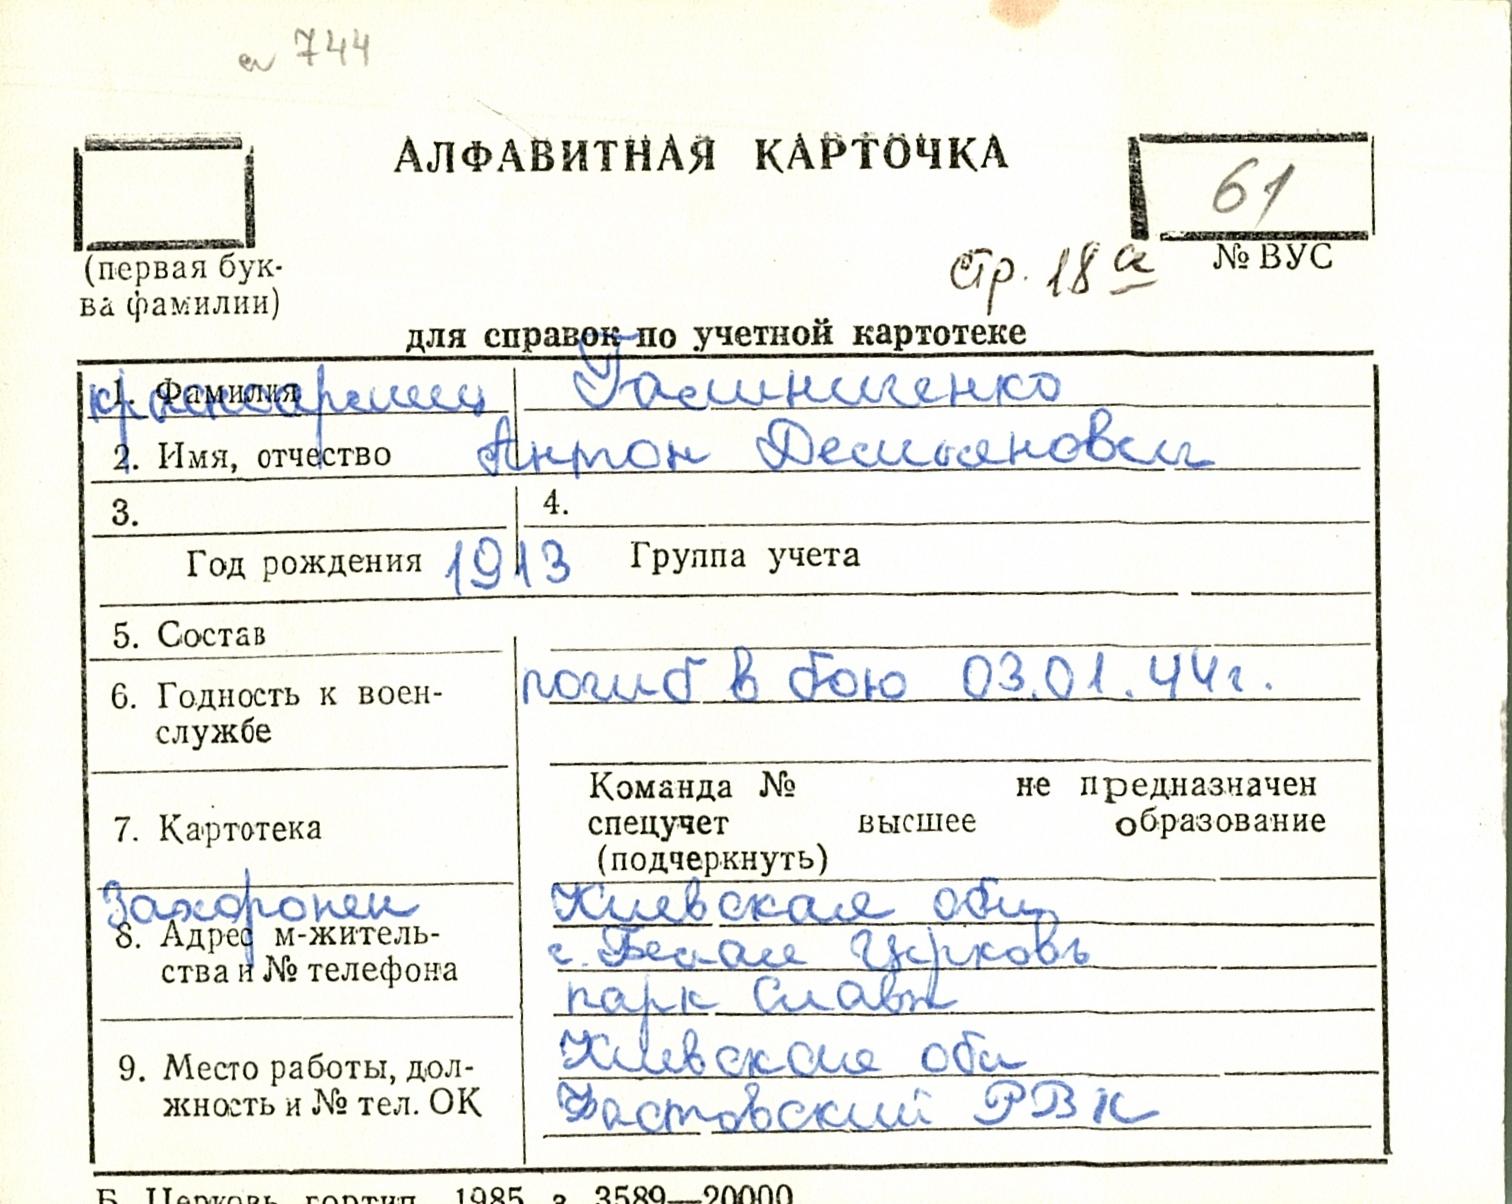 а 744
АЛФАВИТНАЯ КАРТОЧКА
61
(первая бук-
ва фамилии)
стр. 18 а
№ ВУС
для справок по учетной картотеке
1. Фамилия
красноармеец
Галниченко
2. Имя, отчество Антон Демьянович
3. 4.
Год рождения 1913 Группа учета
5. Состав
6. Годность к воен-
службе
погиб в бою 03.01.44г.
7. Картотека
Команда № не предназначен
спецучет высшее образование
(подчеркнуть)
Захоронен
8. Адрес м-житель-
ства и № телефона
Киевская обл
г. Белая Церковь
парк Славы
9. Место работы, дол-
жность и № тел. ОК
Киевская обл
Фастовский РВК
Б. Церковь, гортип. 1985 з. 3589—20000